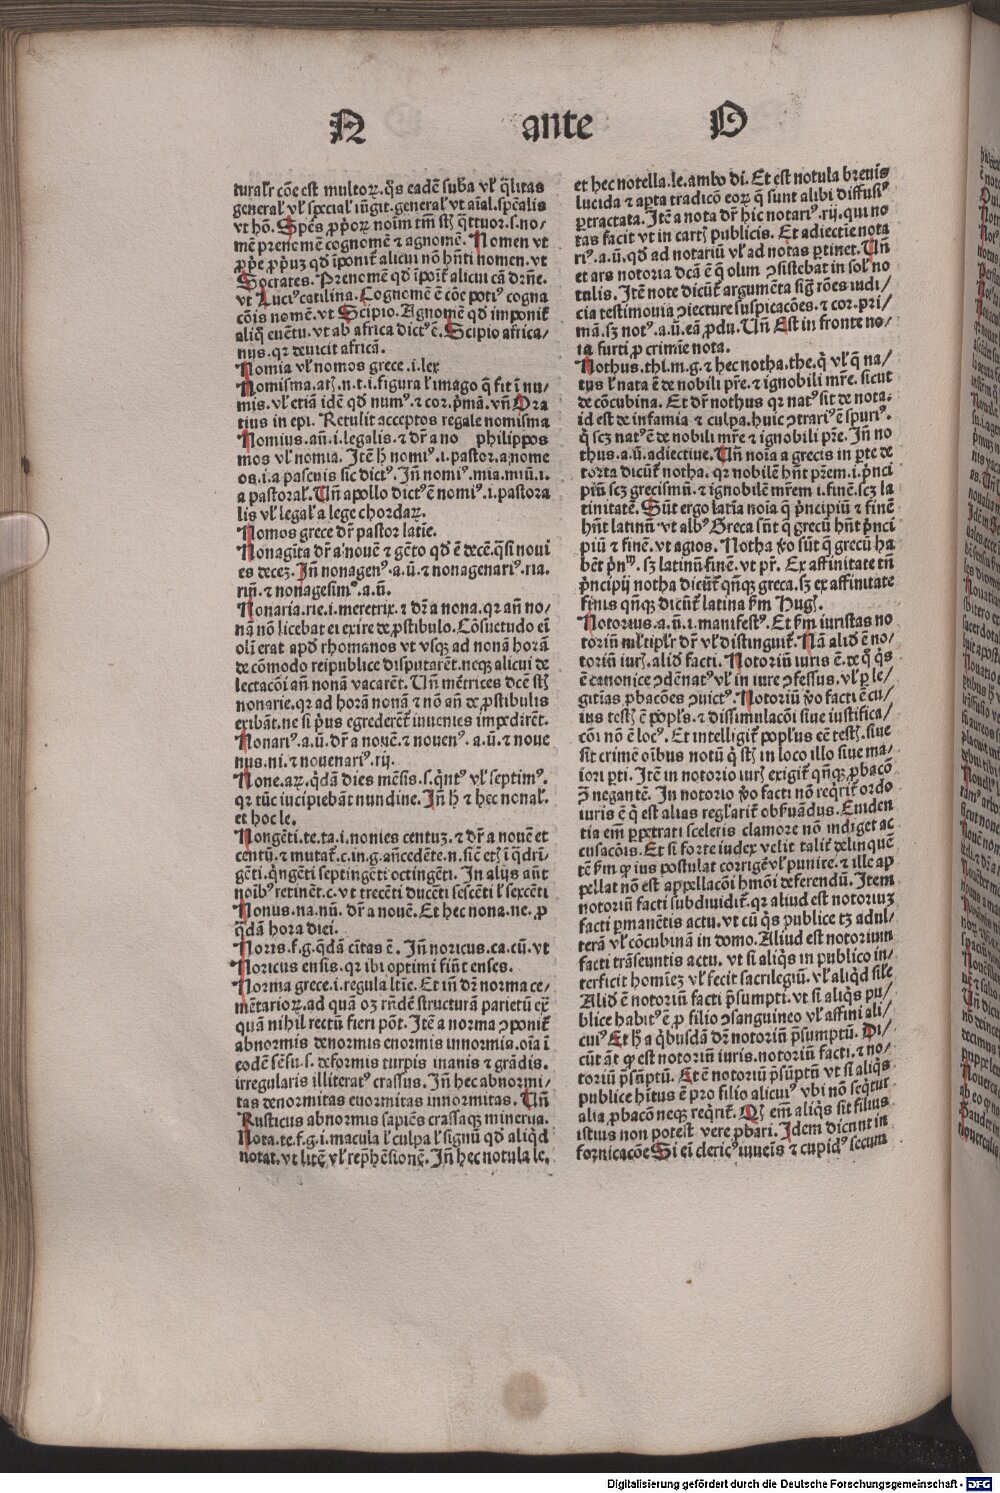 N ante O
turalr̃ cõe est multoꝝ. q̃s eadẽ suba vl̕ q̃litas
general̕ vl̕ special̕ iũgit. general̕ vt aĩal. spẽalis
vt hõ. Spẽs ꝓp̕oꝝ noĩm tm̃ st̃ q̃ttuor. s. no-
mẽ prenomẽ cognomẽ ⁊ agnomẽ. Nomen vt
ꝓp̕e ꝓp̕uꝫ qđ ĩponit̃ alicui nõ hñti nomen. vt
Socrates. Prenomẽ qđ ĩpoĩt̃ alicui cã dr̃ñe.
vt Luciꝰ catilina. Cognomẽ ẽ cõe potiꝰ cogna
cõis nomẽ. vt Scipio. Agnomẽ qđ imponit̃
aliq̃ euẽtu. vt ab africa dictꝰ ẽ. Scipio africa/
nus. qꝛ deuicit africã.
Nomia vl̕ nomos grece .i. lex
Nomisma. atꝭ. n. t. i. figura l̕ imago q̃ fit ĩ nu/
mis. vl̕ etiã idẽ qđ numꝰ. ⁊ cor. p̃mã. vñ Ora
tius in epi. Retulit acceptos regale nomisma
Nomius. añ. i. legalis. ⁊ dr̃ a no philippos
mos vl̕ nomia. Itẽ ħ nomiꝰ .i. pastor. a nome
os .i. a pascuis sic dictꝰ. Iñ nomiꝰ. mia. miũ. i.
a pastoral̕. Uñ apollo dictꝰ ẽ nomiꝰ .i. pastora
lis vl̕ legal̕ a lege chordaꝝ.
Nomos grece dr̃ pastor latĩe.
Nonagĩta dr̃ a nouẽ ⁊ gẽto qđ ẽ decẽ. q̃si noui
es deceꝫ. Iñ nonagenꝰ .a. ũ. ⁊ nonagenariꝰ. ria.
riũ. ⁊ nonagesimꝰ .a. ũ.
Nonaria. rie. i. meretrix. ⁊ dr̃ a nona. qꝛ añ no/
nã nõ licebat ei exire de ꝓstibulo. Cõsuetudo eĩ
olĩ erat apđ rhomanos vt vsqꝫ ad nonã horã
de cõmodo reipublice disputarẽt. neqꝫ alicui de
lectacõi añ nonã vacarẽt. Uñ mẽtrices dcẽ stꝭ
nonarie. qꝛ ad horã nonã ⁊ nõ añ de ꝓstibulis
exibãt. ne si p̕us egrederẽt̃ iuuenies impedirẽt.
Nonariꝰ .a. ũ. dr̃ a nouẽ. ⁊ nouenꝰ. a. ũ. ⁊ noue
nus. ni. ⁊ nouenariꝰ. rij.
None. aꝝ. q̃dã dies mẽsis. s. q̃ntꝰ vl̕ septimꝰ.
qꝛ tũc incipiebãt nundine. Iñ ħ ⁊ hec nonal̕.
et hoc le.
Nongẽti. te. ta. i. nonies centuꝫ. ⁊ dr̃ a nouẽ et
centũ. ⁊ mutat̃. c. in. g. añcedẽte. n. sicẽ etꝭ ĩ q̃drĩ-
gẽti. q̃ngẽti septingẽti octingẽti. In alijs aũt
noĩbꝰ retinẽt. c. vt trecẽti ducẽti sescẽti l̕ sexcẽti
Nonus. na. nũ. dr̃ a nouẽ. Et hec nona. ne. ꝓ
q̃dã hora diei.
Noris. f. g. q̃dã cĩtas ẽ. Iñ noricus. ca. cũ. vt
Noricus ensis. qꝛ ibi optimi fiñt enses.
Norma grece .i. regula ltĩe. Et iñ dr̃ norma ce/
mẽtarioꝝ. ad quã oꝫ rñdẽ structurã parietũ ex̃
quã nihil rectũ fieri põt. Itẽ a norma ꝯponit̃
abnormis denormis enormis innormia. oĩa ĩ
eodẽ sẽsu. s. deformis turpis inanis ⁊ grãdis.
irregularis illiteratꝰ crassus. Iñ hec abnormi/
tas denormitas enormitas innormitas. Uñ
Rusticus abnormis sapiẽs crassaqꝫ minerua.
Nota. te. f. g. i. macula l̕ culpa l̕ signũ qđ aliq̃d
notat. vt litẽ vl̕ rep̕hẽsionẽ. Iñ hec notula le.
et hec notella. le. ambo di. Et est notula breuis
lucida ⁊ aꝑta tradicõ eoꝝ q̃ sunt alibi diffusiꝰ
ꝑtractata. Itẽ a nota dr̃ hic notariꝰ. rij. qui no
tas facit vt in cartꝭ publicis. Et adiectie nota
riꝰ. a. ũ. qđ ad notariũ vl̕ ad notas ꝑtinet. Uñ
et ars notoria dcã ẽ q̃ olim ꝯsistebat in sol̕ no
tulis. Itẽ note dicũt̃ argumẽta sig̃ rões iudi/
cia testimonia ꝯiecture suspicacões. ⁊ cor. pri/
mã. sꝫ notꝰ .a. ũ. eã ꝓdu. Uñ Est in fronte no/
ta furti ꝓ crimĩe nota.
Nothus. thi. m. g. ⁊ hec notha. the. q̃ vl̕ q̃ na/
tus l̕ nata ẽ de nobili pr̃e. ⁊ ignobili mr̃e. sicut
de cõcubina. Et dr̃ nothus qꝛ natꝰ sit de nota.
id est de infamia ⁊ culpa. huic ꝯtrariꝰ ẽ spuriꝰ.
q̃ scꝫ natꝰ ẽ de nobili mr̃e ⁊ ignobili pr̃e. Iñ no
thus. a. ũ. adiectiue. Uñ noĩa a grecis in ꝑte de
torta dicũt̃ notha. qꝛ nobilẽ hñt pr̃em. i. p̃nci
piũ scꝫ grecismũ. ⁊ ignobilẽ mr̃em .i. finẽ. scꝫ la
tinitatẽ. Sũt ergo latĩa noĩa q̃ p̃ncipiũ ⁊ finẽ
hñt latinũ vt albꝰ Greca sũt q̃ grecũ hñt p̃nci
piũ ⁊ finẽ. vt agios. Notha v̕o sũt q̃ grecũ ha
bẽt p̃nᵐ. sꝫ latinũ finẽ. vt pr̃. Ex affinitate tñ
p̃ncipij notha dicũt̃ qñqꝫ greca. sꝫ ex affinitate
finis qñqꝫ dicũt̃ latina ẜm Hugꝭ.
Notorius. a. ũ. i. manifestꝰ. Et ẜm iuristas no
toriũ ml̃tiplr̃ dr̃ vl̕ distinguit̃. Nã aliđ ẽ no/
toriũ iurꝭ. aliđ facti. Notoriũ iuris ẽ. de q̃ q̃s
ẽ canonice ꝯdẽnatꝰ vl̕ in iure ꝯfessus. vl̕ ꝑ le/
gitĩas ꝓbacões ꝯuictꝰ. Notoriũ v̕o facti ẽ cu/
ius testꝭ ẽ popl̕s. ⁊ dissimulacõi siue iustifica/
cõi nõ ẽ locꝰ. Et intelligit̃ popl̕us eẽ testꝭ. siue
sit crimẽ oĩbus notũ q̃ stꝭ in loco illo siue ma/
iori ꝑti. Itẽ in notorio iurꝭ exigit̃ qñqꝫ ꝓbacõ
ꝯ̃ negantẽ. In notorio v̕o facti nõ req̃rit̃ ordo
iuris ẽ q̃ est alias regl̕arit̃ obẜuãdus. Euiden
tia em̃ ꝑpetrati sceleris clamore nõ indiget ac
cusacõis. Et si forte iudex velit talit̃ delinquẽ
tẽ ẜm ꝙ ius postulat corrigẽ vl̕ punire. ⁊ ille ap
pellat nõ est appellacõi hmõi deferendũ. Item
notoriũ facti subdiuidit̃. qꝛ aliud est notoriuꝫ
facti ꝑmanẽtis actu. vt cũ q̃s publice tꝫ adul/
terã vl̕ cõcubinã in domo. Aliud est notorium
facti trãseuntis actu. vt si aliq̃s in publico in/
terficit homĩeꝫ vl̕ fecit sacrilegiũ. vl̕ aliq̃d sil̕e
Aliđ ẽ notoriũ facti p̃sumpti. vt si aliq̃s pu/
blice habitꝰ ẽ ꝓ filio ꝯsanguineo vl̕ affini ali/
cuiꝰ Et ħ a q̃busdã dr̃ notoriũ p̃sumptũ. Di/
cũt aũt ꝙ est notoriũ iuris. notoriũ facti. ⁊ no/
toriũ p̃sũptũ. Et ẽ notoriũ p̃sũptũ vt si aliq̃s
publice hĩtus ẽ pro filio alicuiꝰ vbi nõ seq̃tur
alia ꝓbacõ neqꝫ req̃rit̃. Qꝭ em̃ aliq̃s sit filius
istius non potest vere ꝓbari. Idem dicunt in
fornicacõe Si eĩ clericꝰ iuueĩs ⁊ cupidꝰ secum
Digitalisierung gefördert durch die Deutsche Forschungsgemeinschaft - DFG